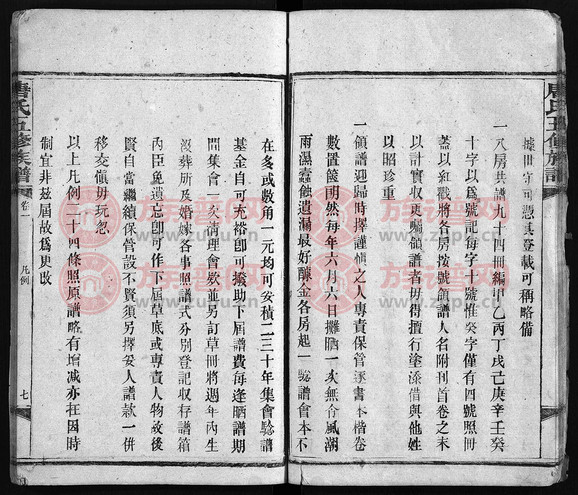 唐氏五修族譜
據世守可憑其登載可稱略備
一八房共譜九十四冊編甲乙丙丁戊己庚辛壬癸
十字以爲號記每字十號惟癸字僅有四號照冊
蓋以紅戳將各房按號領譜人名附刊首卷之末
以計實收更囑領譜者毋得擅行塗漆借與他姓
以昭珍重
一領譜迎歸時擇謹慎之人專責保管逐書本楷卷
數置篋閉然每年六月六日攤晒一次無令風潮
雨濕蠹蝕遺漏最好醵金各房起一驗譜會本不
在多或數角一元均可妥積二三十年集會驗譜
基金自可充裕卽可撥助下屆譜費每逢晒譜期
間集會一次清理會欵並另訂草冊將週年內生
沒葬所及婚嫁各事照譜式分別登記收存譜箱
內臣免遺忘卽可作下屆草底或專責人物故後
賢自當繼續保管設不賢須另擇妥人譜款一併
移交愼毋玩忽
以上凡例二十四條照原譜略有增減亦在因時
制宜非茲屆故爲更改
唐氏五修族譜
卷一
凡例
七
族譜网